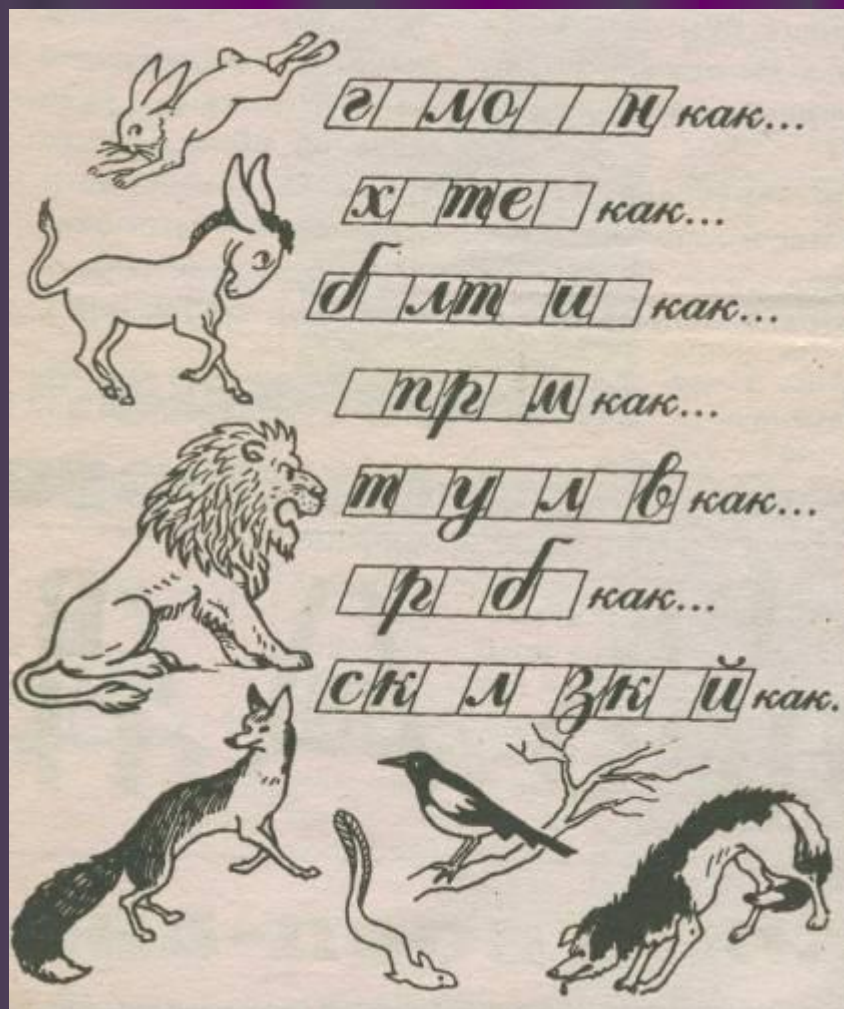 г мо н как...
х те как...
б лт и как...
пр м как...
т у л в как...
р б как...
ск л зк й как.